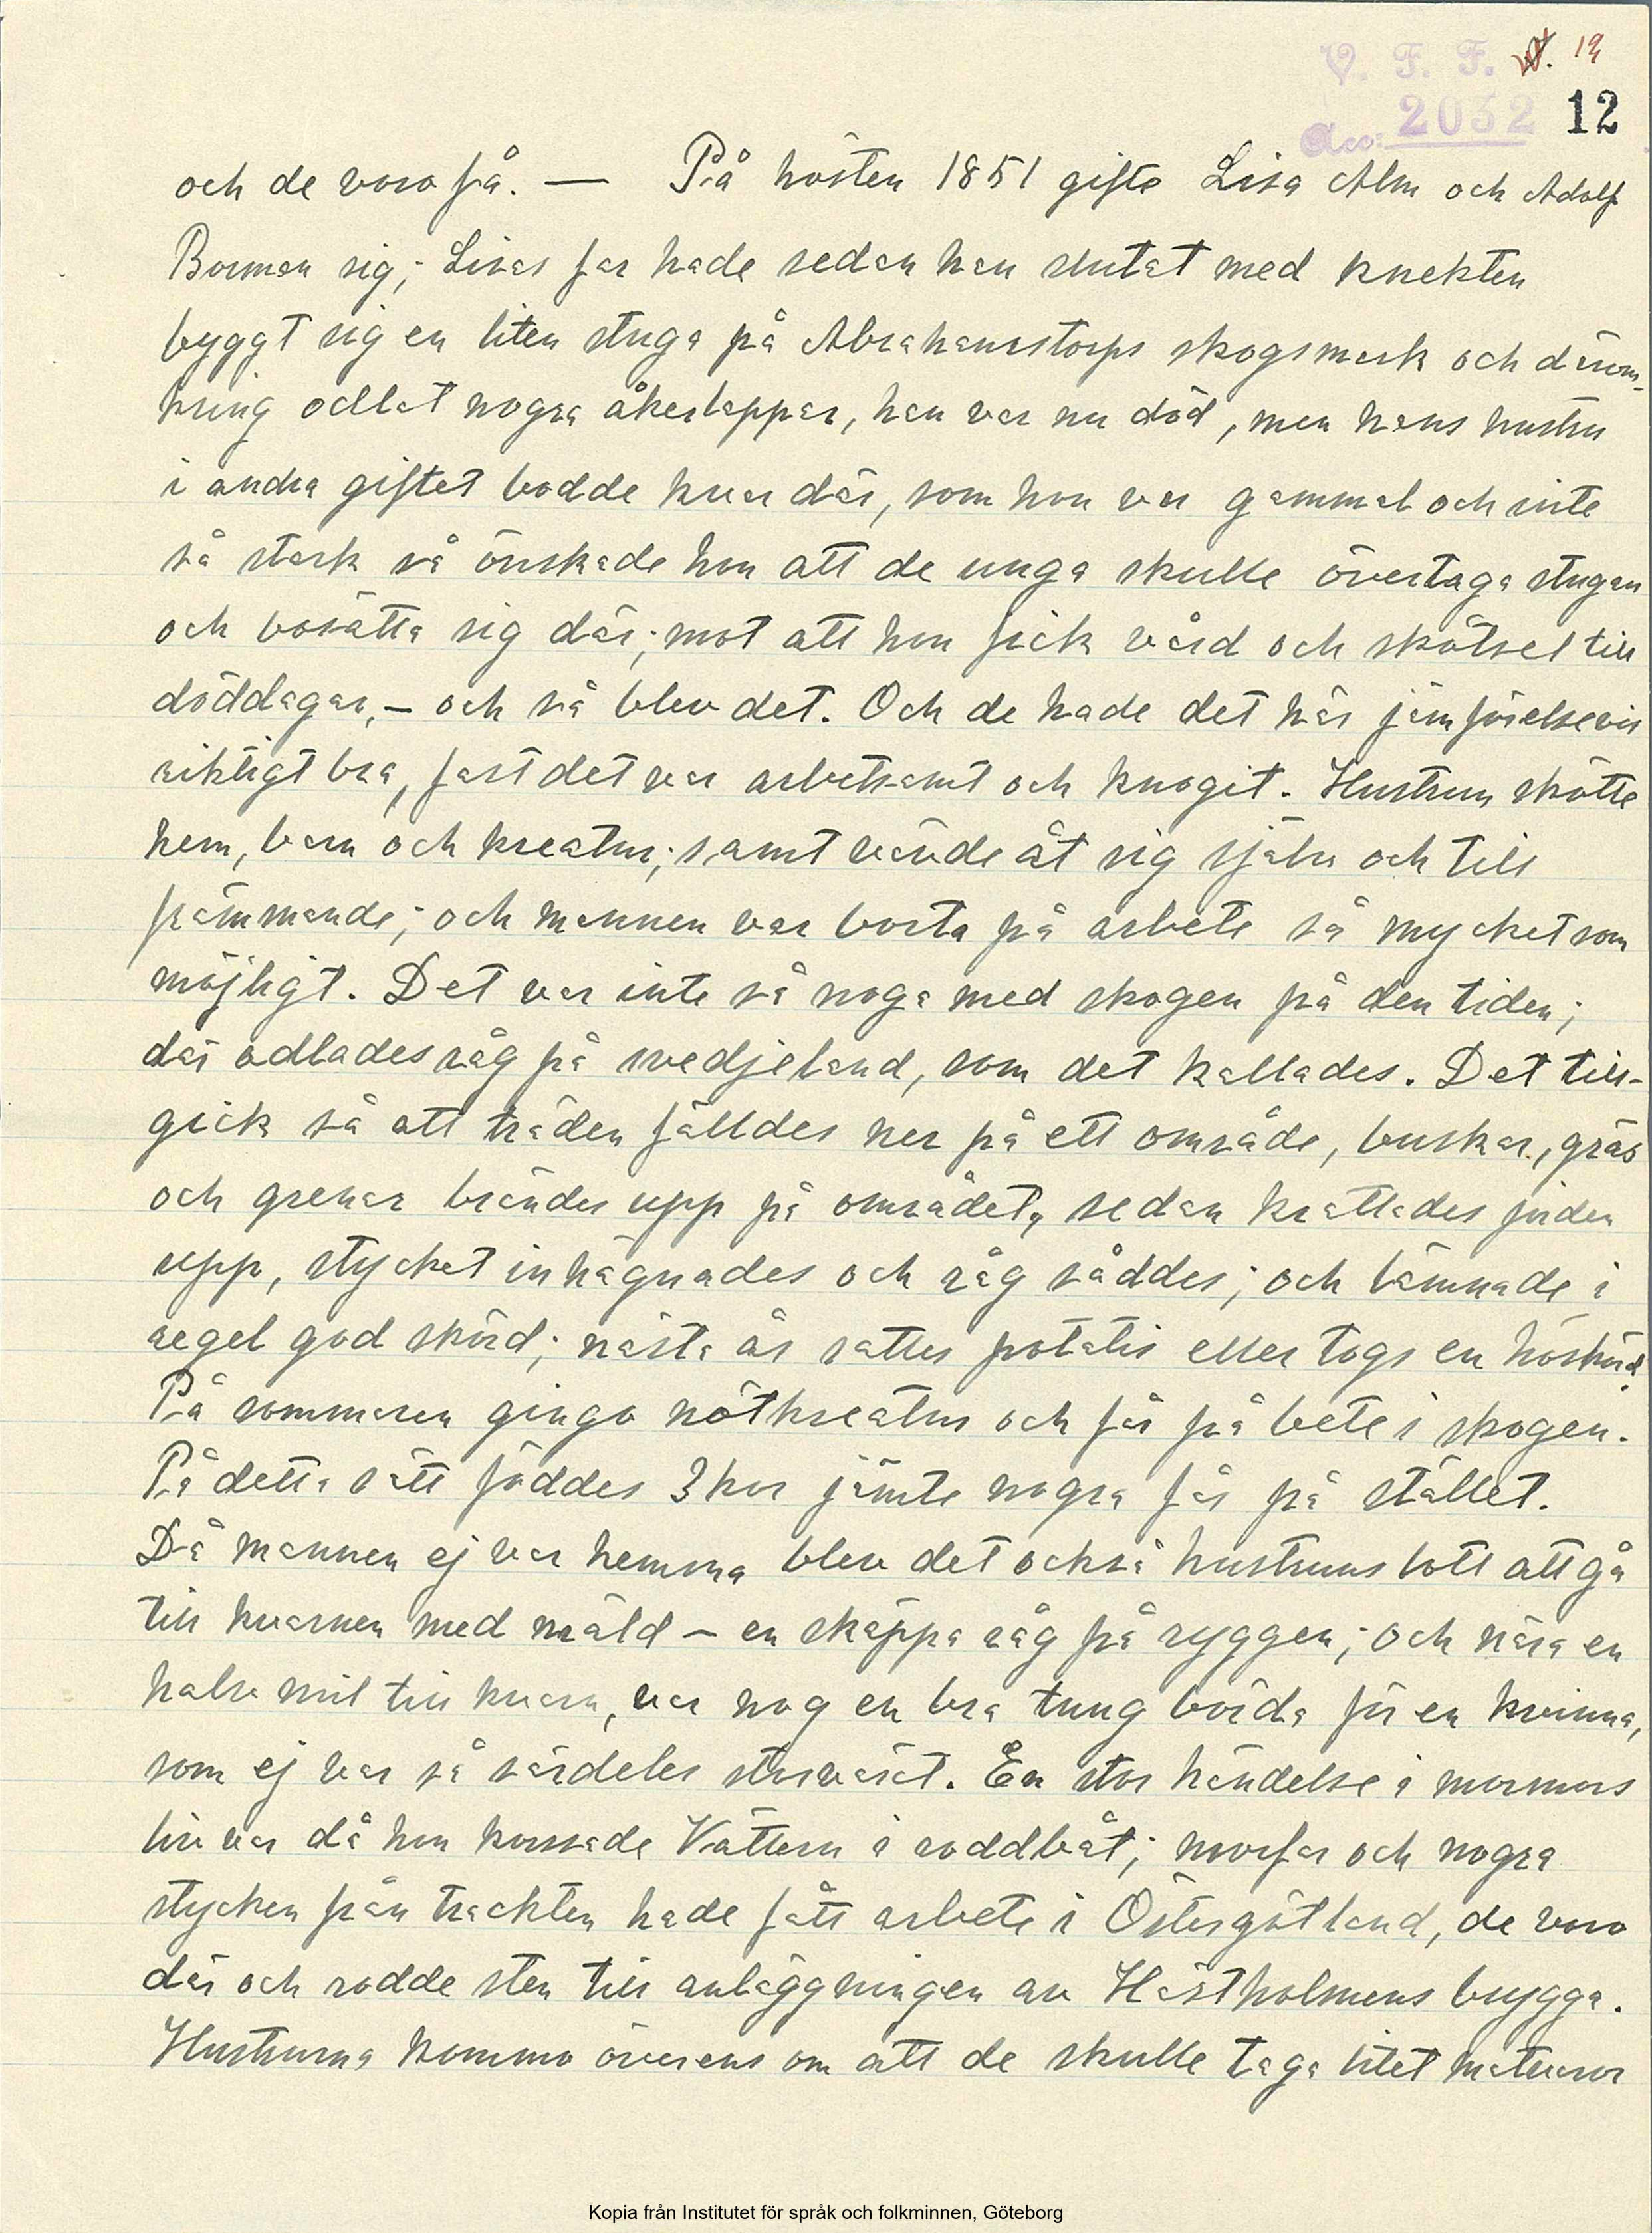 V. F. F. 19
Acc: 2032 12
och de voro få. — På hösten 1851 gifte Lisa Alm och Adolf
Borman sig; Lisas far hade sedan han slutat med knekten
byggt sig en liten stuga på Abrahamstorps skogsmark och därom-
kring odlat nogra åkerlappar, han var nu död, men hans hustru
i andra giftet bodde kvar där, som hon var gammal och inte
så stark så önskade hon att de unga skulle övertaga stugan
och bosätta sig där; mot att hon fick vård och skötsel till
döddagar, – och så blev det. Och de hade det här jämförelsevis
riktigt bra, fast det var arbetsamt och knogit. Hustrun skötte
hem, barn och kreatur; samt vävde åt sig själv och till
främmande; och mannen var borta på arbete så mycket som
möjligt. Det var inte så noga med skogen på den tiden;
där odlades råg på svedjeland, som det kallades. Det till-
gick så att träden fälldes ner på ett område, buskar, gräs
och grenar brändes upp på området, sedan krattades jorden
upp, stycket inhägnades och råg såddes; och lämnade i
regel god skörd; nästa år sattes potatis eller togs en höskörd.
På sommaren gingo nötkreatur och får på bete i skogen.
På detta sätt föddes 3 kor jämte nogra får på stället.
Då mannen ej var hemma blev det också hustruns lott att gå
till kvarnen med mäld – en skäppa råg på ryggen; och nära en
halv mil till kvarn, var nog en bra tung börda för en kvinna,
som ej var så särdeles storväxt. En stor händelse i mormors
liv var då hon korsade Vättern i roddbåt; morfar och nogra
stycken från trackten hade fått arbete i Östergötland, de voro
där och rodde sten till anläggningen av Hästholmens brygga.
Hustrurna kommo överens om att de skulle taga litet matvaror
Kopia från Institutet för språk och folkminnen, Göteborg